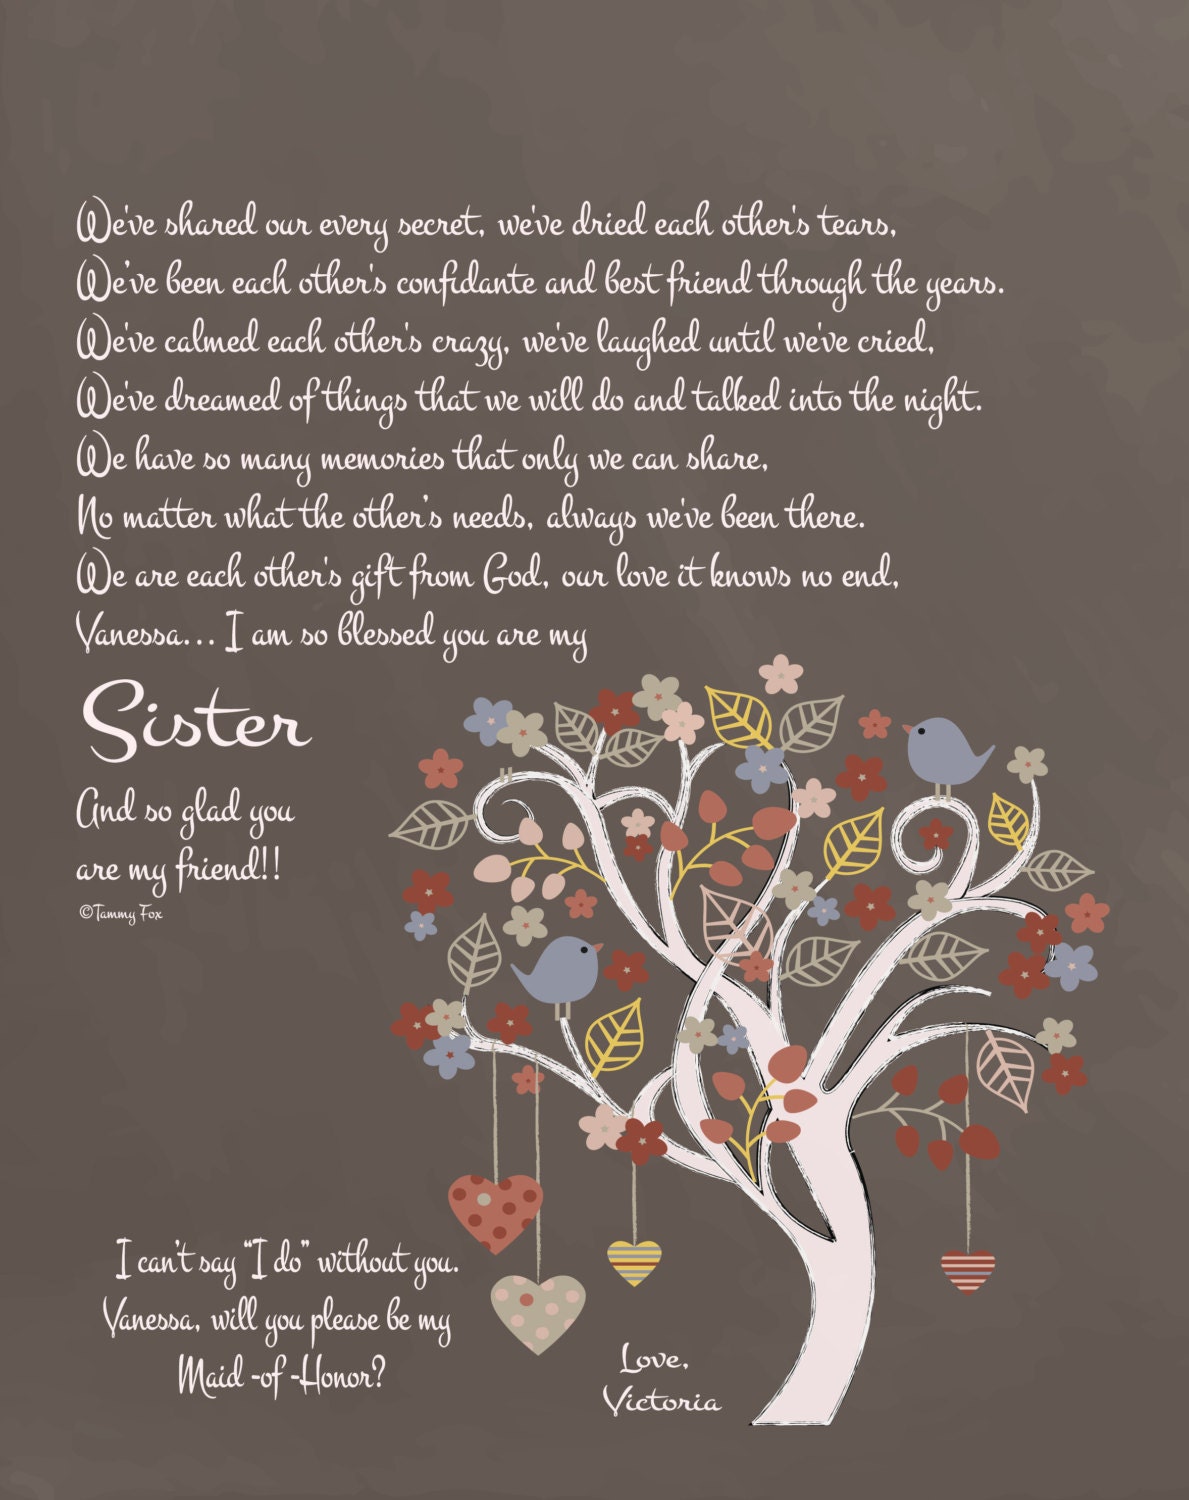 We've shared our every secret, we've dried each other's tears,
We've been each other's confidante and best friend through the years.
We've calmed each other's crazy, we've laughed until we've cried,
We've dreamed of things that we will do and talked into the night.
We have so many memories that only we can share,
No matter what the other's needs, always we've been there.
We are each other's gift from God, our love it knows no end,
Vanessa... I am so blessed you are my
Sister
And so glad you
are my friend!!
©Tammy Fox
I can't say "I do" without you.
Vanessa, will you please be my
Maid -of -Honor?
Love,
Victoria